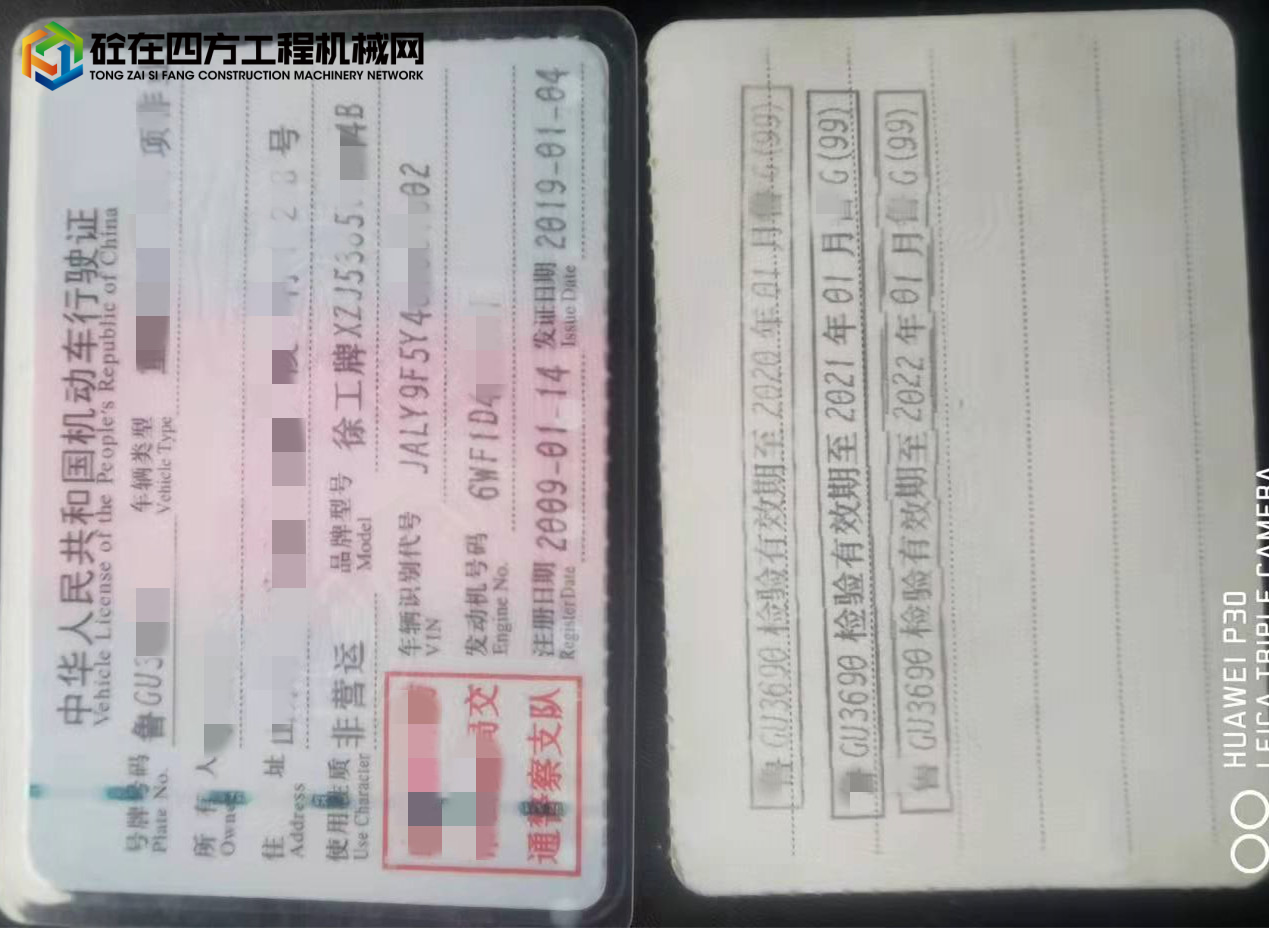 砼在四方工程机械网
TONG ZAI SI FANG CONSTRUCTION MACHINERY NETWORK
中华人民共和国机动车行驶证
Vehicle License of the People's Republic of China
号牌号码 鲁GU3 车辆类型 项作
Plate No. Vehicle Type
所有人
Owner
住址 号
Address
使用性质 非营运 品牌型号 徐工牌XZJ5 4B
Use Character Model
车辆识别代号 JALY9F5Y4 02
VIN
发动机号码 6WF1D
Engine No.
注册日期 2009-01-14 发证日期 2019-01-04
Register Date Issue Date
交
通警察支队
鲁GU3690 检验有效期至2020年01月鲁G(99)
鲁GU3690 检验有效期至2021年01月 G(99)
鲁GU3690 检验有效期至2022年01月鲁G(99)
HUAWEI P30
LEICA TRIPLE CAMERA